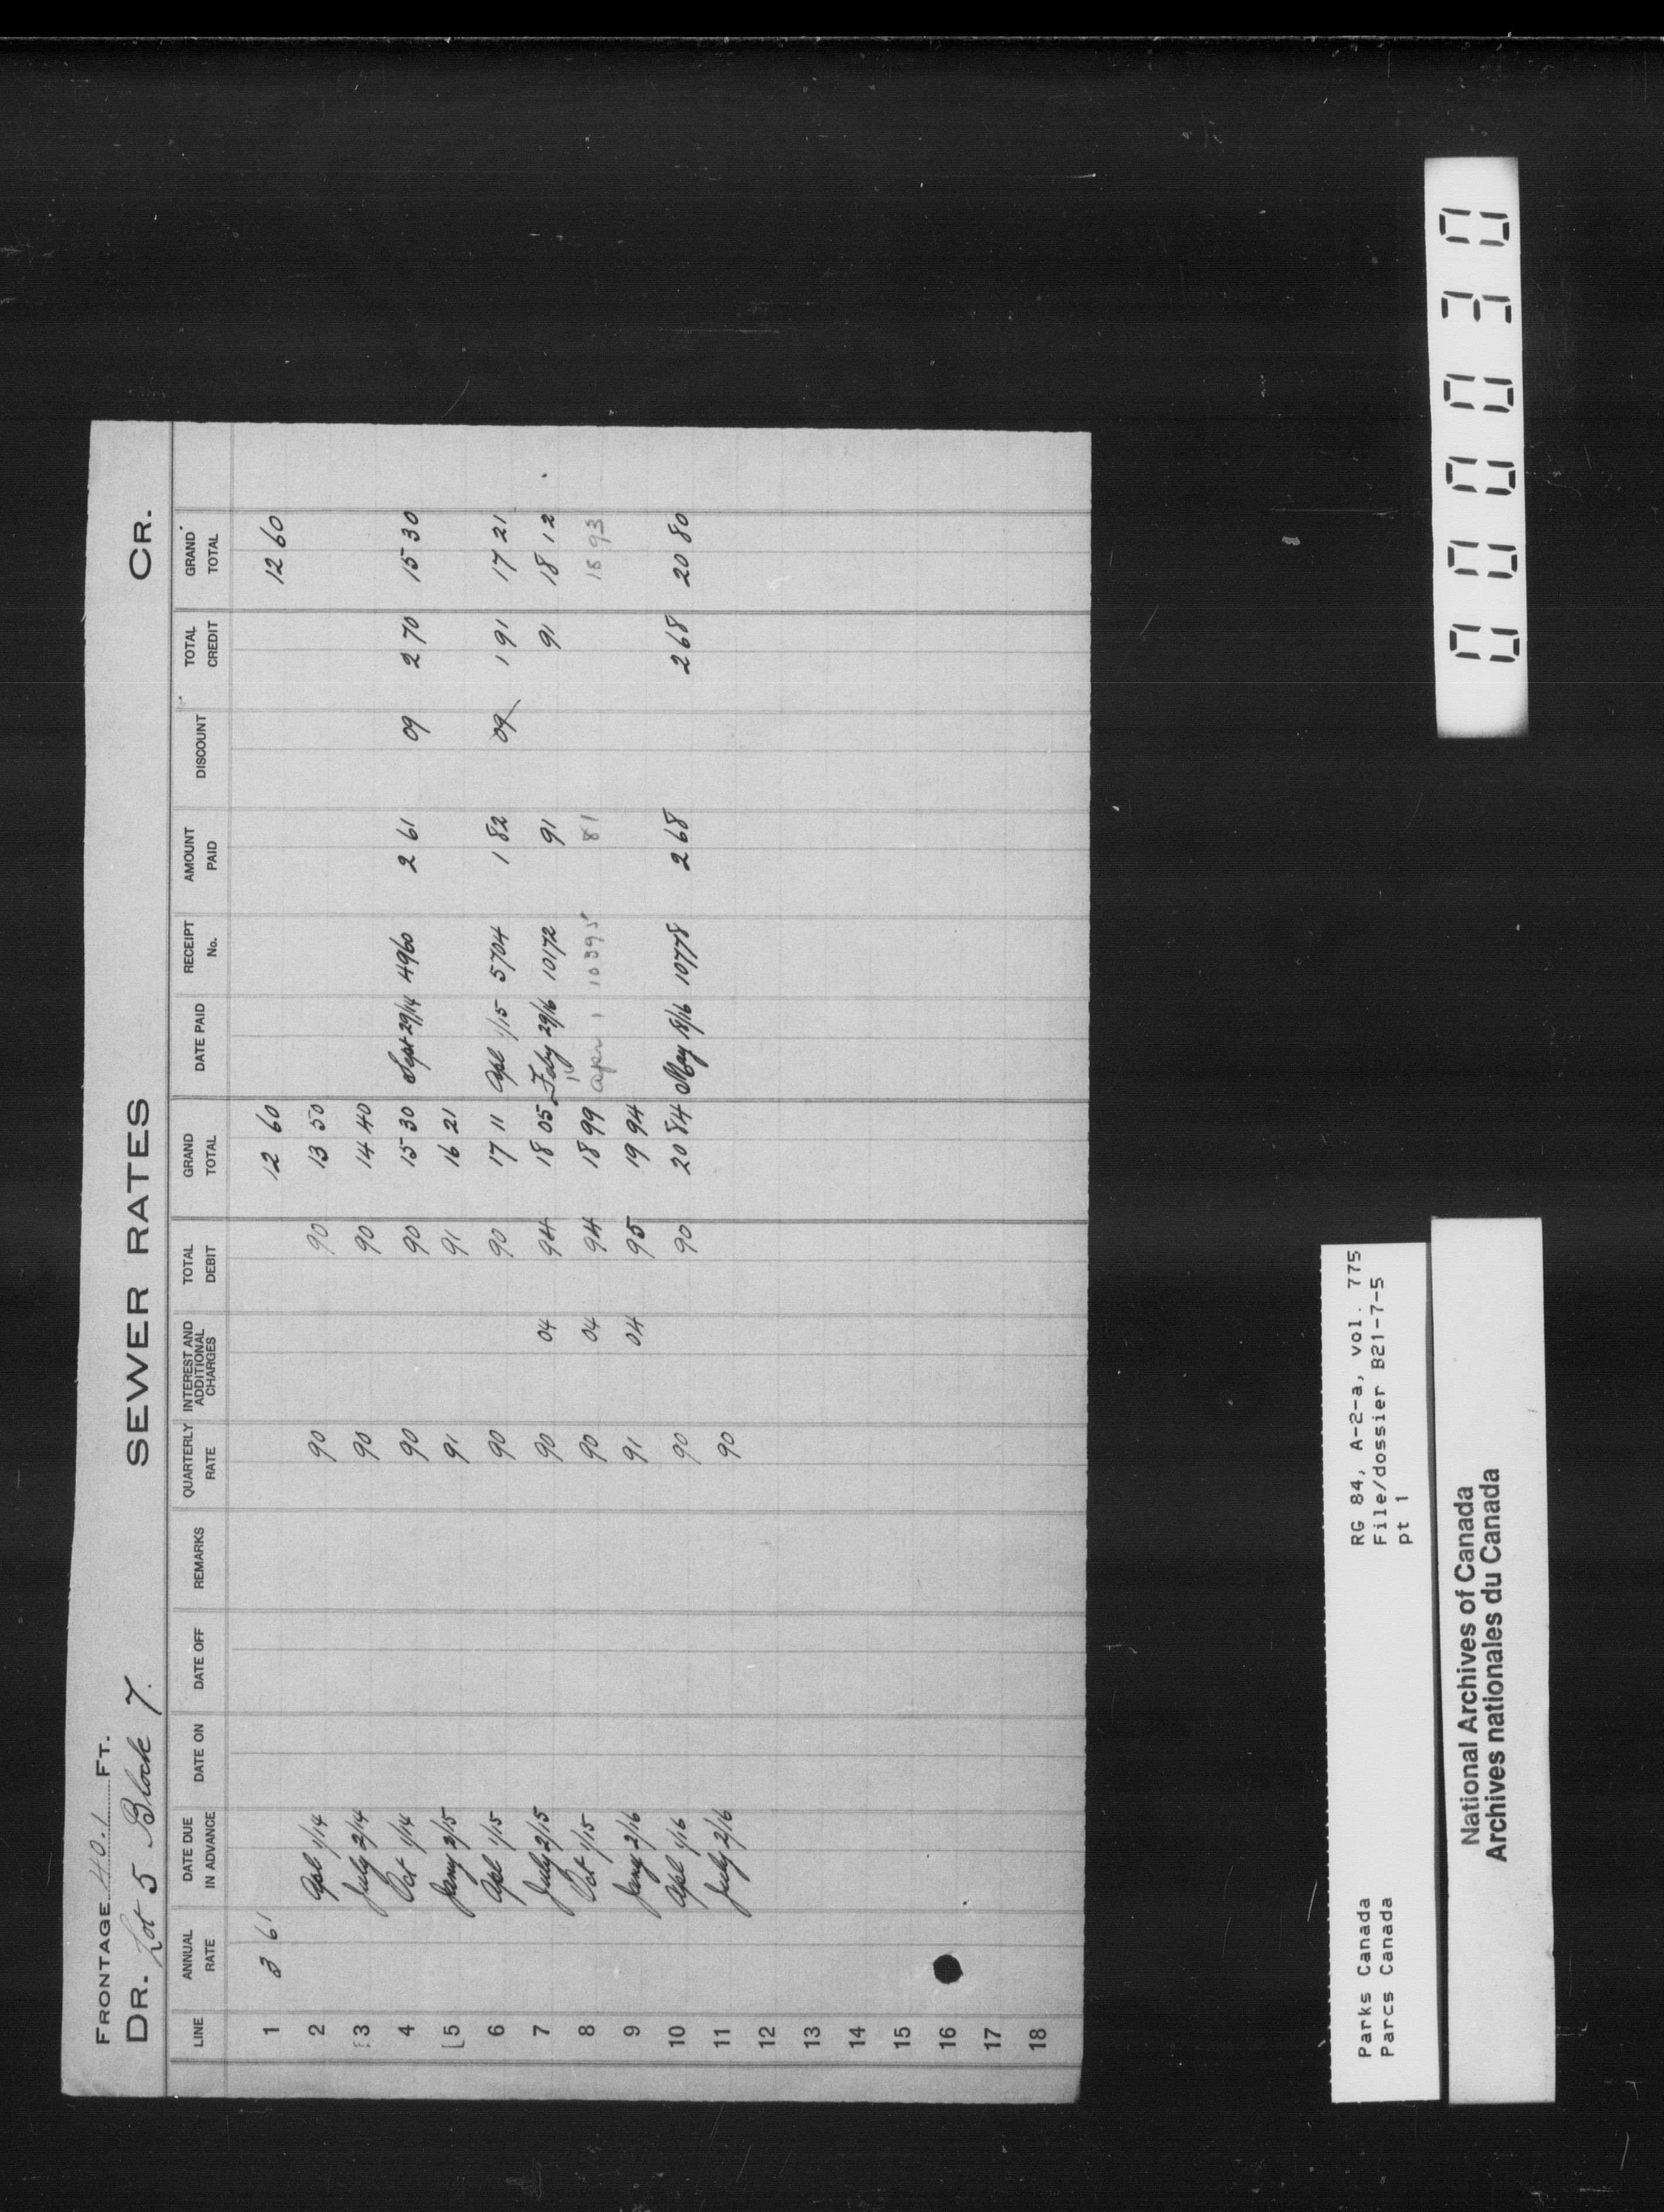 FRONTAGE 40.1 FT.
DR. Lot 5 Block 7. SEWER RATES CR.
LINE ANNUAL RATE DATE DUE IN ADVANCE DATE ON DATE OFF REMARKS QUARTERLY RATE INTEREST AND ADDITIONAL CHARGES TOTAL DEBIT GRAND TOTAL DATE PAID RECEIPT No. AMOUNT PAID DISCOUNT TOTAL CREDIT GRAND TOTAL
1 3 61 12 60 12 60
2 Apl 1/14 90 90 13 50
3 July 2/14 90 90 14 40
4 Oct 1/14 90 90 15 30 Sept 29/14 4960 2 61 09 2 70 15 30
5 Jany 2/15 91 91 16 21
6 Apl 1/15 90 90 17 11 Apl 1/15 5704 1 82 09 1 91 17 21
7 July 2/15 90 04 94 18 05 Feby 29/16 10172 91 91 18 12
8 Oct 1/15 90 04 94 18 99 Apr 1 10395 81 18 93
9 Jany 2/16 91 04 95 19 94
10 Apl 1/16 90 90 20 84 May 18/16 10778 2 68 2 68 20 80
11 July 2/16 90
12
13
14
15
16
17
18
Parks Canada RG 84, A-2-a, vol. 775
Parcs Canada File/dossier B21-7-5
pt 1
National Archives of Canada
Archives nationales du Canada
000030